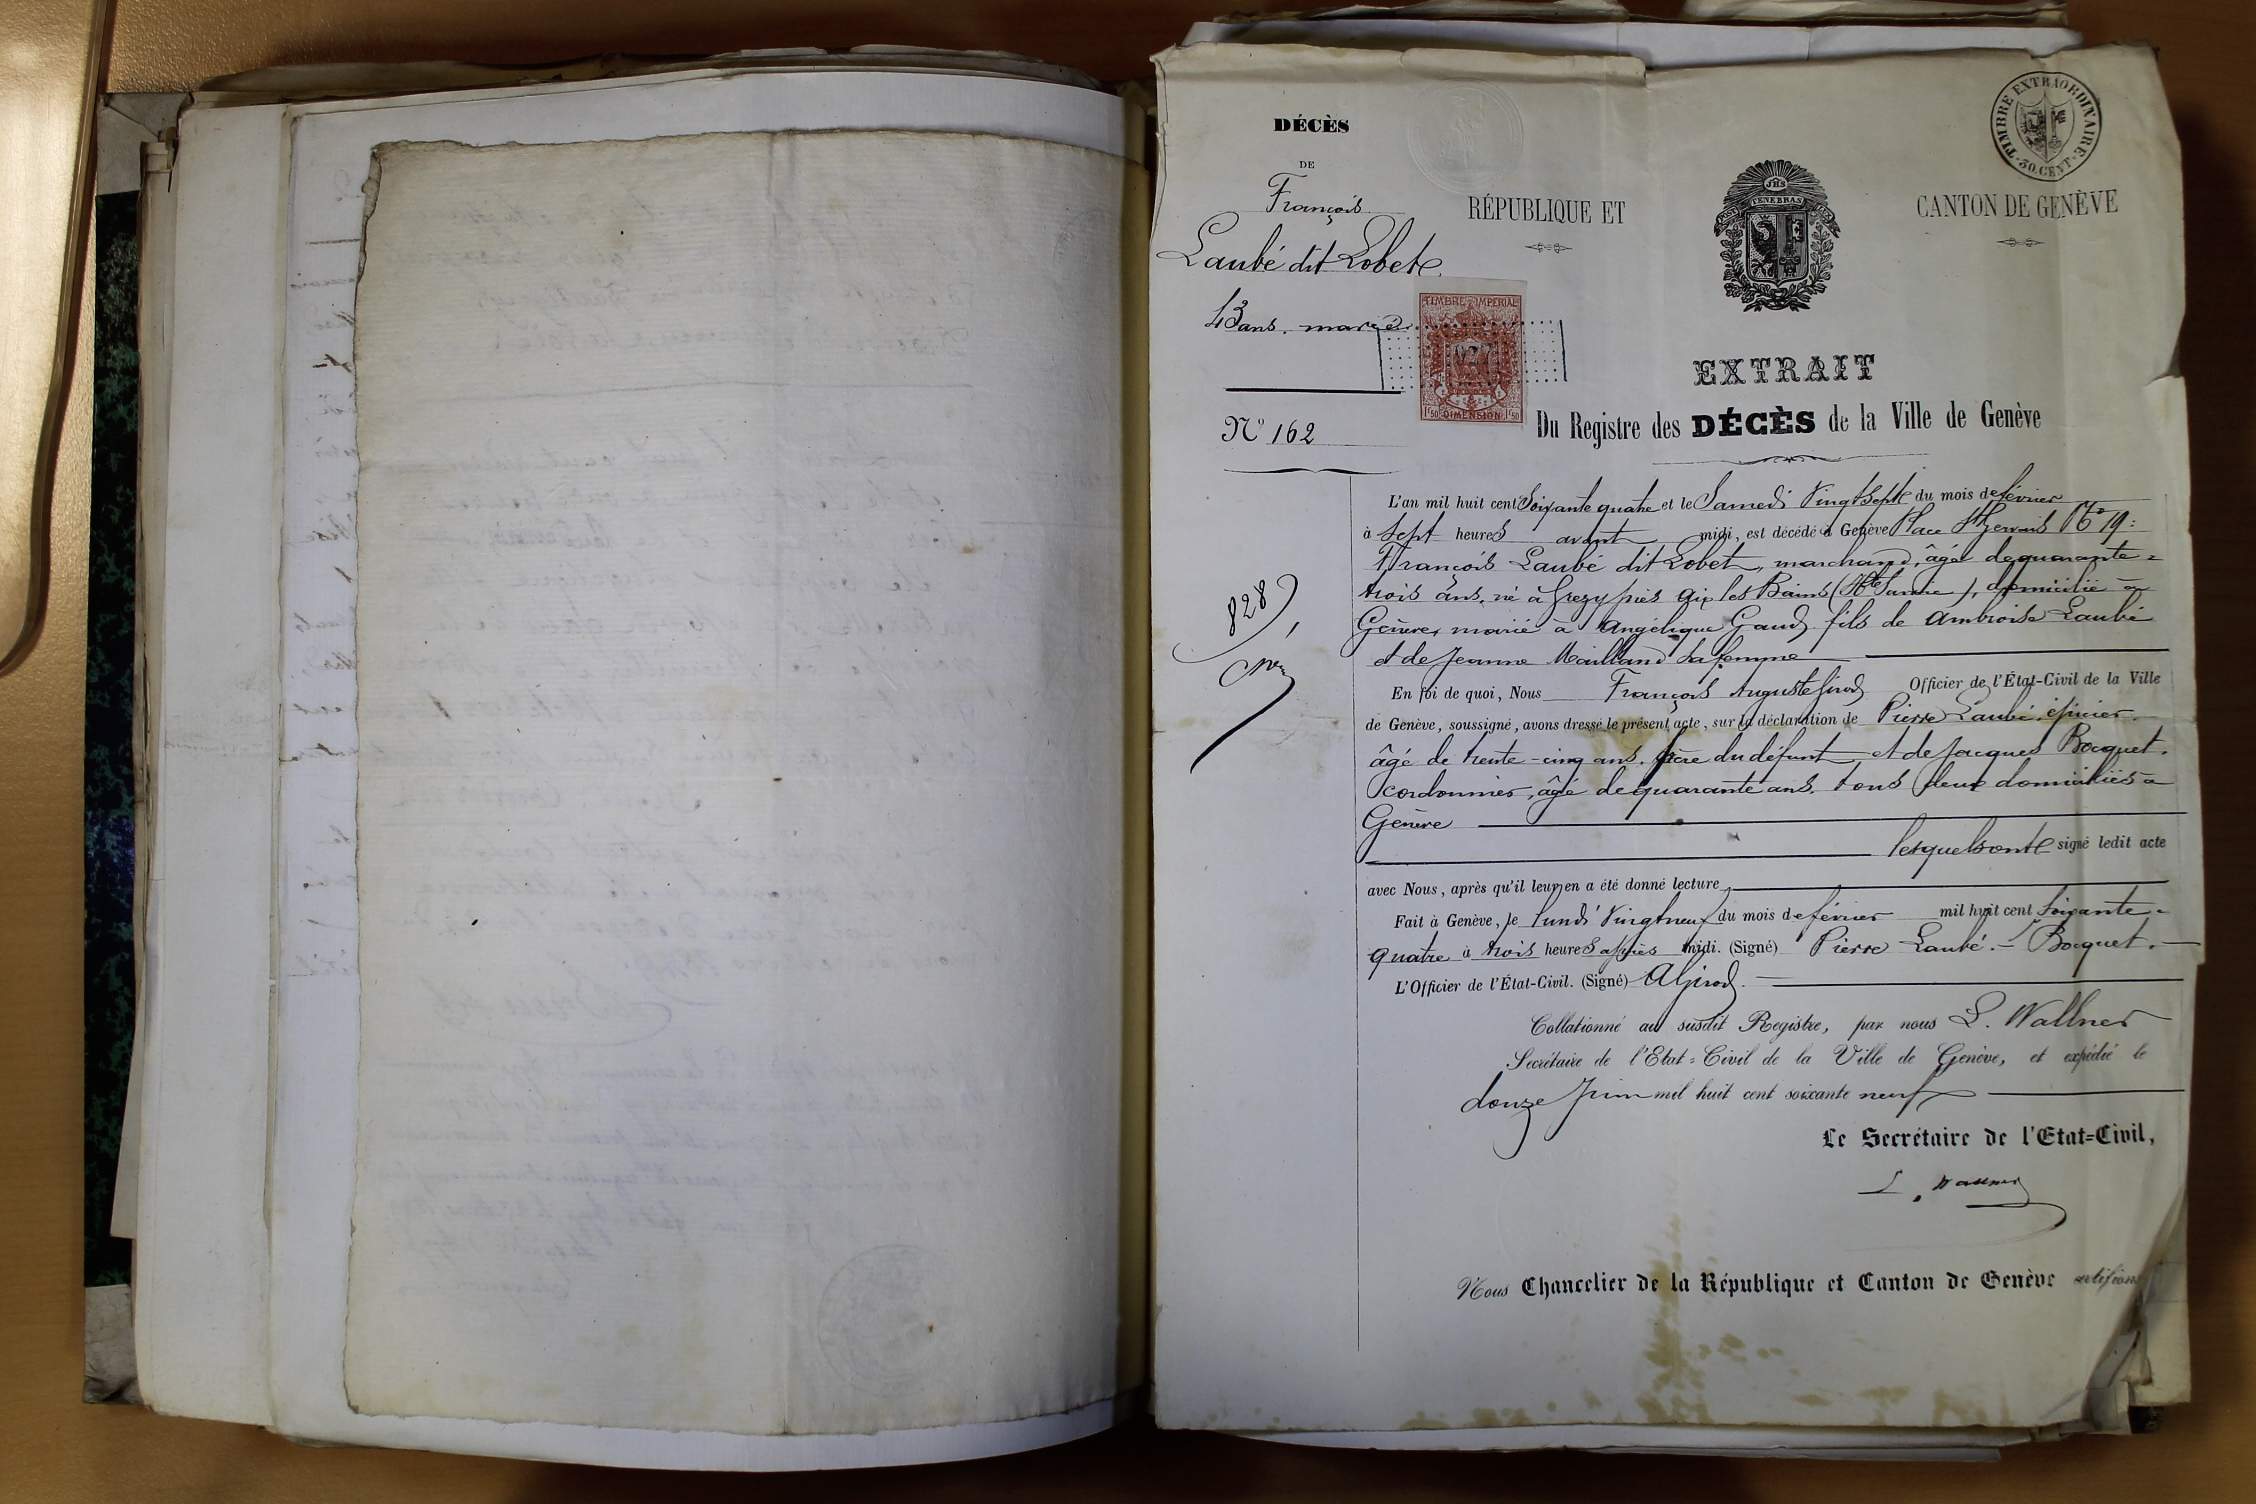 DÉCÈS
DE
François
Laubé dit Lobet
43 ans. marié
N° 162
828
RÉPUBLIQUE ET
CANTON DE GENÈVE
TIMBRE EXTRAORDINAIRE
30. CENT.
JHS
POST TENEBRAS LUX
TIMBRE IMPERIAL
1f 50 DIMENSION 1f 50
EXTRAIT
Du Registre des DÉCÈS de la Ville de Genève
L'an mil huit cent Soixante quatre et le Samedi Vingt sept du mois de février
à Sept heures avant midi, est décédé à Genève Place St Gervais No 19:
François Laubé dit Lobet, marchand, âgé de quarante=
trois ans, né à Grezy près Aix les Bains (Hte Savoie), domicilié à
Genève, marié à Angélique Gaud, fils de Ambroise Laubé
et de Jeanne Mailland sa femme
En foi de quoi, Nous François Auguste Girod Officier de l'État-Civil de la Ville
de Genève, soussigné, avons dressé le présent acte, sur la déclaration de Pierre Laubé, épicier,
âgé de trente-cinq ans, frère du défunt et de Jacques Bocquet,
cordonnier, âgé de quarante ans, tous deux domiciliés à
Genève
lesquels ont signé ledit acte
avec Nous, après qu'il leur en a été donné lecture
Fait à Genève, le lundi Vingt neuf du mois de février mil huit cent Soixante=
quatre à trois heures après midi. (Signé) Pierre Laubé.- Bocquet.-
L'Officier de l'État-Civil. (Signé) A Girod.
Collationné au susdit Registre, par nous L. Wallner
Secrétaire de l'Etat=Civil de la Ville de Genève, et expédié le
douze Juin mil huit cent soixante neuf
Le Secrétaire de l'Etat=Civil,
L. Wallner
Nous Chancelier de la République et Canton de Genève certifions